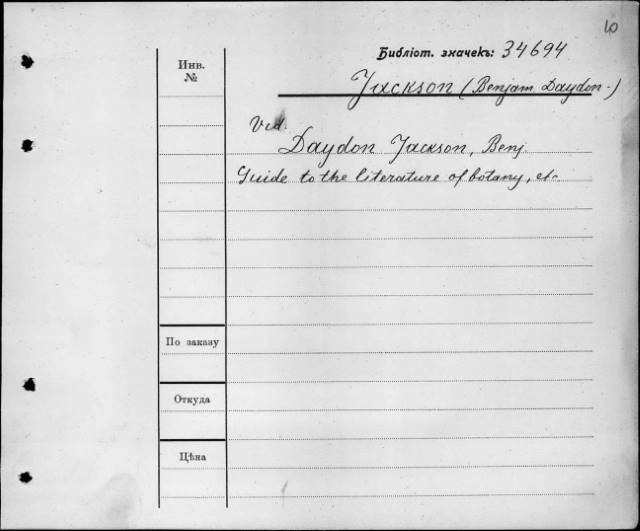 10
Библіот. значекъ: 34694
Инв. №
Jackson (Benjam Daydon-)
Vid.
Daydon Jackson, Benj.
Guide to the literature of botany, etc
По заказу
Откуда
Цѣна